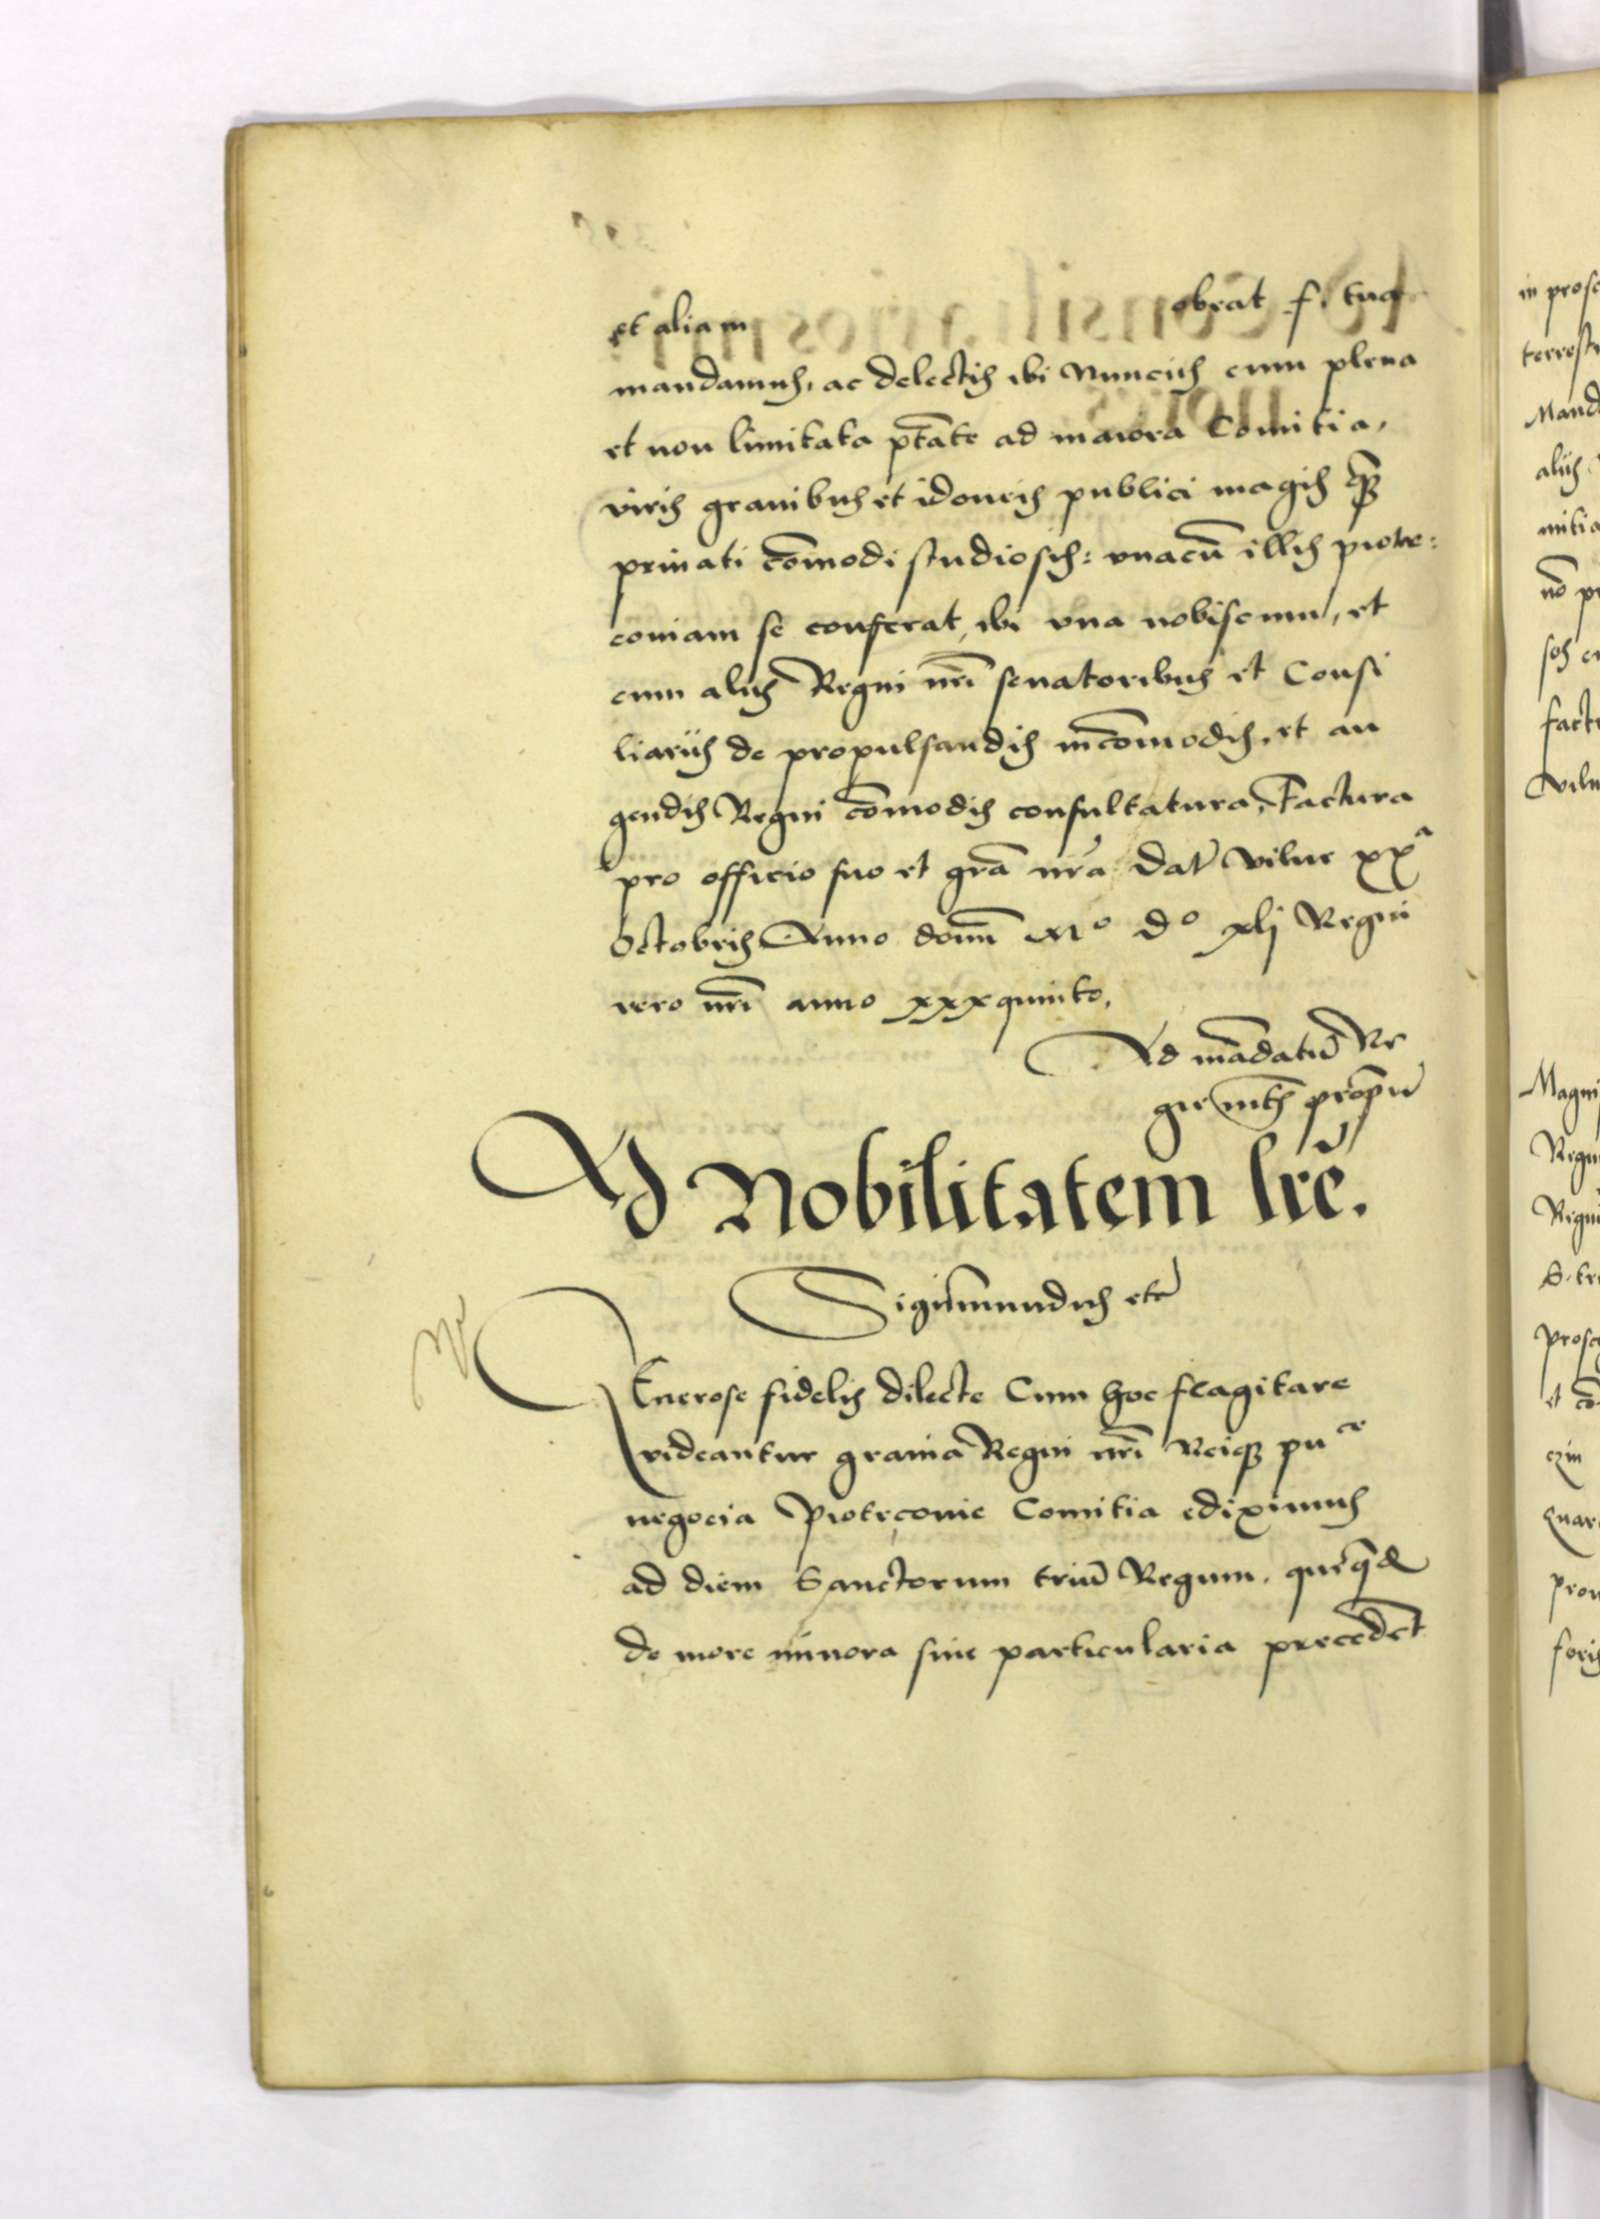 et aliam obeat f. tuą
mandamus, ac delectis ibi Nuncijs cum plena
et non limitata ptāte ad maiora Comitia,
viris grauibus et idoneis publici magis q̄ꝫ
priuati cōmodi studiosis: vnacū illis piotr:
couiam se conferat, ibi vna nobiscum, et
cum alijs Regni nr̄i senatoribus et Consi
liarijs de propulsandis incōmodis, et au
gendis Regni cōmodis consultatura, Factura
pro officio suo et grā nr̄a Dat̄ Vilne xxª
Octobris Anno domī Mº Dº xlj Regni
vero nr̄i anno xxxquinto,
Ad mādatū Re
gie mtis propriū
Ad Nobilitatem lr̄e.
Sigismundus etc̄
Generose fidelis dilecte Cum hoc flagitare
videantur grauia Regni nr̄i Reiqꝫ puce
negocia Piotrcouie Comitia ediximus
ad diem Sanctorum triū Regum. que q̄d
de more minora siue particularia precedēt